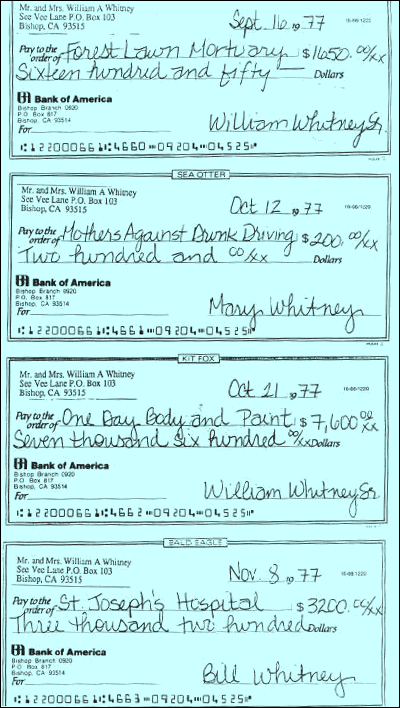 Mr. and Mrs. William A Whitney
See Vee Lane P.O. Box 103
Bishop, CA 93515
Sept. 16 19 77
Pay to the order of Forest Lawn Mortuary $ 1650. 00/xx
Sixteen hundred and fifty Dollars
Bank of America
Bishop Branch 0920
P.O. Box 817
Bishop, CA 93514
For William Whitney Sr.
SEA OTTER
Mr. and Mrs. William A Whitney
See Vee Lane P.O. Box 103
Bishop, CA 93515
Oct 12 19 77
Pay to the order of Mothers Against Drunk Driving $ 200. 00/xx
Two hundred and 00/xx Dollars
Bank of America
Bishop Branch 0920
P.O. Box 817
Bishop, CA 93514
For Mary Whitney
KIT FOX
Mr. and Mrs. William A Whitney
See Vee Lane P.O. Box 103
Bishop, CA 93515
Oct 21 19 77
Pay to the order of One Day Body and Paint $ 7,600 00/xx
Seven thousand Six hundred 00/xx Dollars
Bank of America
Bishop Branch 0920
P.O. Box 817
Bishop, CA 93514
For William Whitney Sr.
BALD EAGLE
Mr. and Mrs. William A Whitney
See Vee Lane P.O. Box 103
Bishop, CA 93515
Nov. 8 19 77
Pay to the order of St. Joseph's Hospital $ 3200. 00/xx
Three thousand two hundred Dollars
Bank of America
Bishop Branch 0920
P.O. Box 817
Bishop, CA 93514
For Bill Whitney